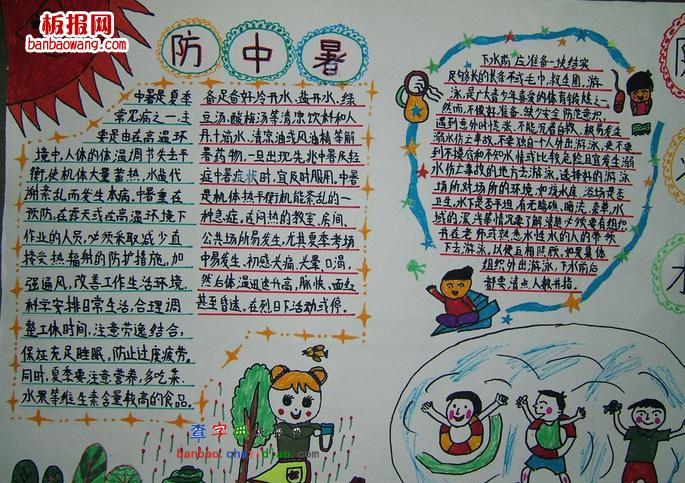 板报网
banbaowang.com
防中暑
中暑是夏季
常见病之一,主
要是由在高温环
境中,人体的体温调节失去平
衡,使机体大量蓄热,水盐代
谢紊乱而发生本病,中暑重在
预防,在露天或在高温环境下
作业的人员,必须采取减少直
接受热辐射的防护措施,加
强通风,改善工作生活环境.
科学安排日常生活,合理调
整工休时间,注意劳逸结合,
保证充足睡眠,防止过度疲劳.
同时,夏季要注意营养,多吃菜、
水果等维生素含量较高的食品。
备足备好冷开水、盐开水,绿
豆汤、酸梅汤等清凉饮料和人
丹十滴水、清凉油或风油精等解
暑药物,一旦出现先兆中暑及轻
症中暑症状时,宜及时服用.中暑
是机体热平衡机能紊乱的一
种急症,在闷热的教室、房间、
公共场所易发生,尤其夏季考场
中易发生,初感头痛、头晕、口渴,
然后体温迅速升高,脉快、面红
甚至昏迷,在烈日下活动或停.
下水前应准备一块结实
足够长的长条布或毛巾,救生圈,游
泳,是广大青少年喜爱的体育锻炼之一.
然而,不做好准备、缺少安全防范意识,
遇到意外时慌张、不能沉着自救,极易发生
溺水伤亡事故.不要独自一个人外出游泳,更不要
到不摸底和不知水情或比较危险且宜发生溺
水伤亡事故的地方去游泳,选择好的游泳
场所,对场所的环境,如该水库、浴场是否
卫生,水下是否平坦、有无暗礁、暗流、杂草,水
域的深浅等情况要了解清楚.必须要有组织
并在老师或熟悉水性的人的带领
下去游泳,以便互相照顾,如果集体
组织外出游泳,下水前后
都要清点人数并指.
水
查字典